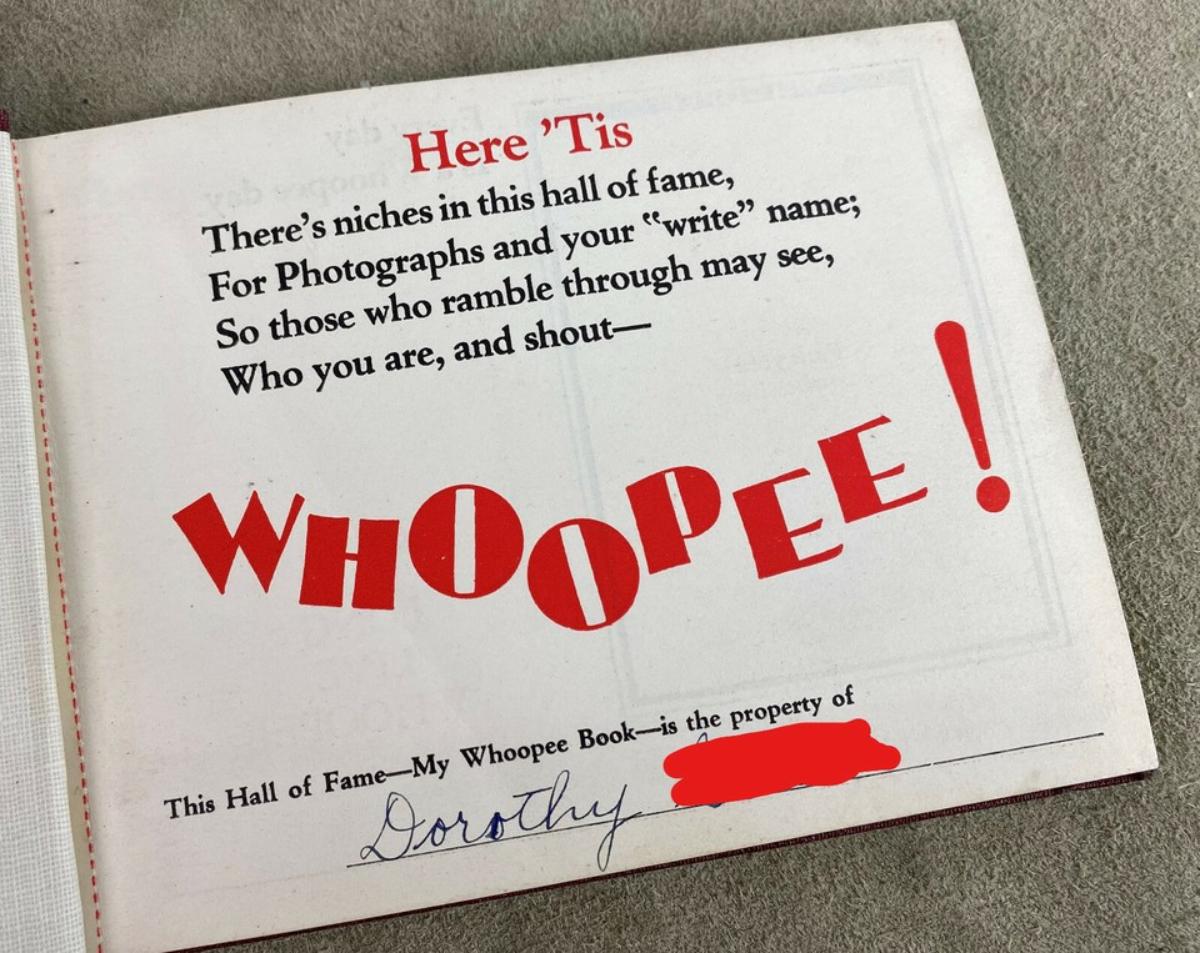 Here ’Tis
There’s niches in this hall of fame,
For Photographs and your “write” name;
So those who ramble through may see,
Who you are, and shout—
WHOOPEE!
This Hall of Fame—My Whoopee Book—is the property of
Dorothy